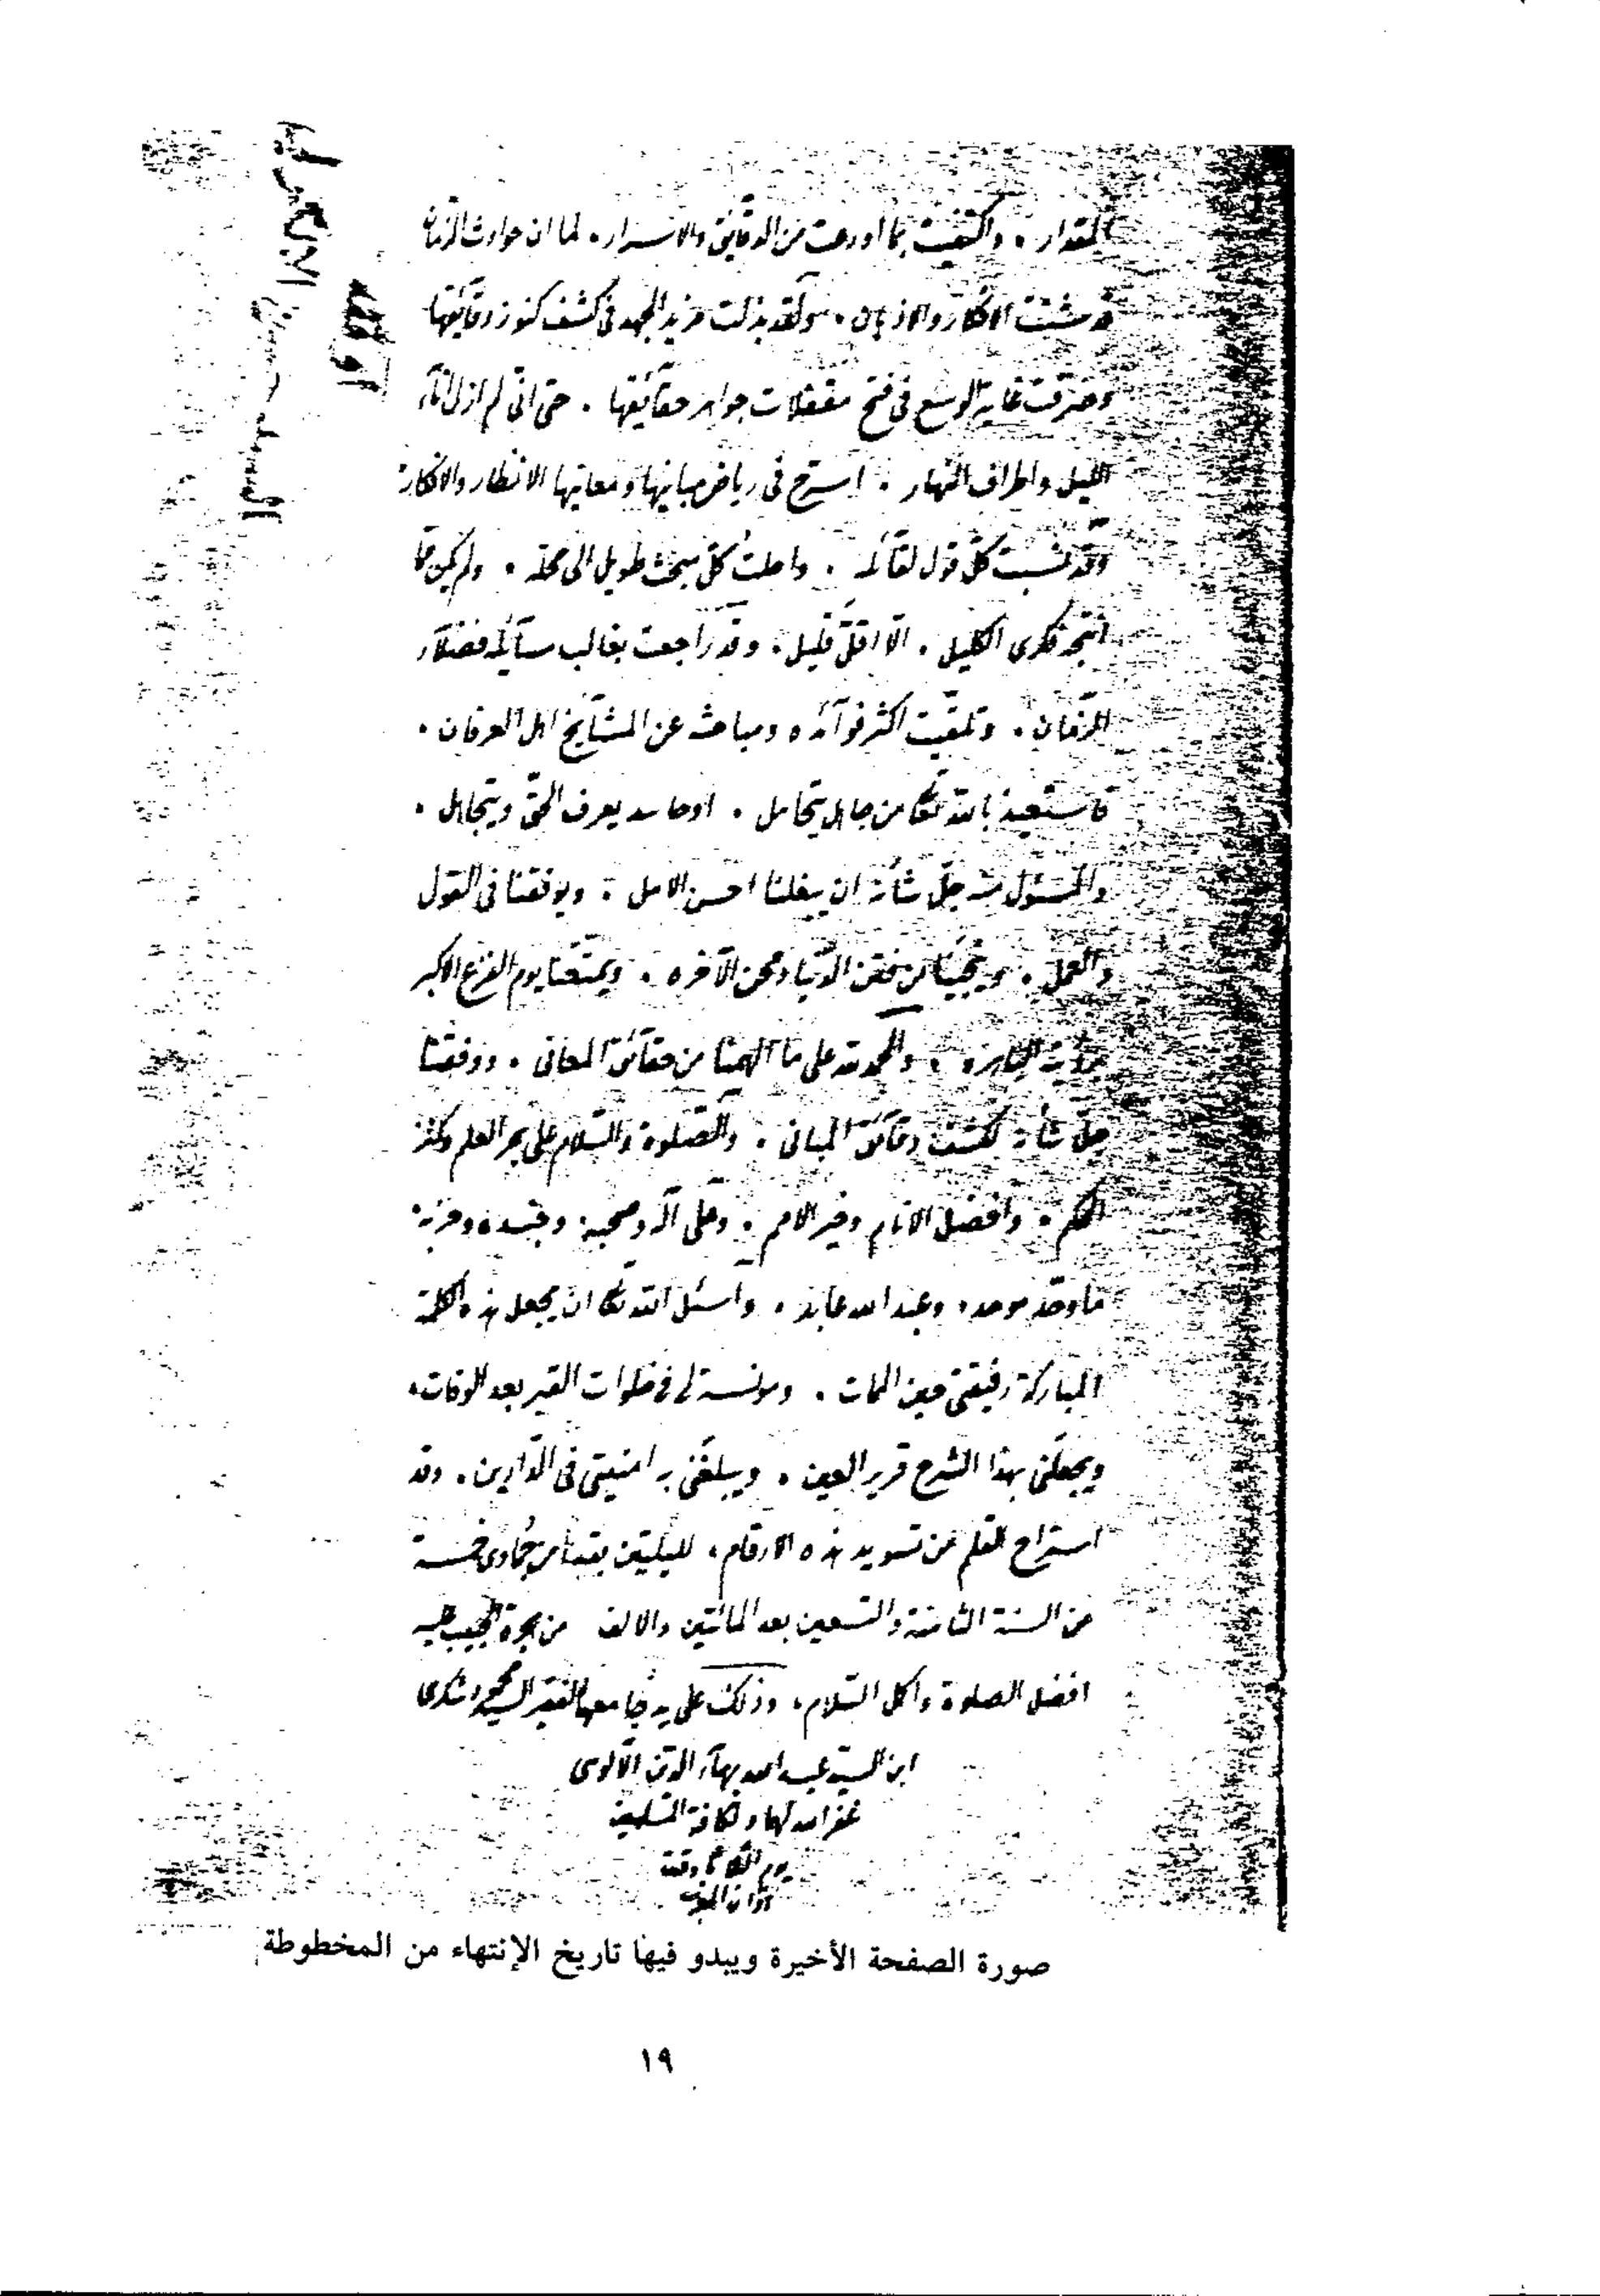 المقدار . واكتفيت بما اودعت من الدقائق والاسرار . لما ان حوادث الزمان
قد شتت الافكار والاذهان . ولقد بذلت مزيد الجهد في كشف كنوز دقايقها
وصرفت غاية الوسع في فتح مقفلات جواهر حقايقها . حتى اني لم ازل اناء
الليل واطراف النهار . اسرح في رياض مبانيها ومعانيها الانظار والافكار
وقد نسبت كل قول لقائله . واحلت كل مبحث طويل الى محله . ولم يكن مما
انتجه فكري الكليل . الا اقل قليل . وقد راجعت بغالب مسائله فضلاء
الزمان . وتلقيت اكثر فوائده ومباحثه عن المشايخ اهل العرفان .
فاستعيذ بالله تعالى من جاهل يتحامل . او حاسد يعرف الحق ويتجاهل .
والمسئول منه جل شانه ان يبلغنا احسن الامل . ويوفقنا في القول
والعمل . وينجينا من فتن الدنيا ومحن الآخره . ويمتعنا يوم الفزع الاكبر
والحمد لله على ما الهمنا من حقائق المعاني . ووفقنا
جل شانه لكشف دقائق المباني . والصلوة والسلام على بحر العلم وكنز
الحكم . وافضل الانام وخير الامم . وعلى آله وصحبه وجنده وحزبه
ما وحد موحد . وعبد الله عابد . واسئل الله تعالى ان يجعل هذه الكلمة
المباركة رفيقتي حين الممات . ومونسة لي في خلوات القبر بعد الوفات .
ويجعلني بهذا الشرح قرير العين . ويبلغني به امنيتي في الدارين . وقد
استراح القلم من تسويد هذه الارقام . لليلتين بقيتا من جمادى خمسة
من السنة الثامنة والتسعين بعد المائتين والالف من هجرة الحبيب عليه
افضل الصلوة واكمل السلام . وذلك على يد جامعها الفقير السيد محمود شكري
ابن السيد عبد الله بهاء الدين الآلوسي
غفر الله لهما ولكافة المسلمين
يوم الثلاثا وقت
اذان
صورة الصفحة الأخيرة ويبدو فيها تاريخ الإنتهاء من المخطوطة
١٩